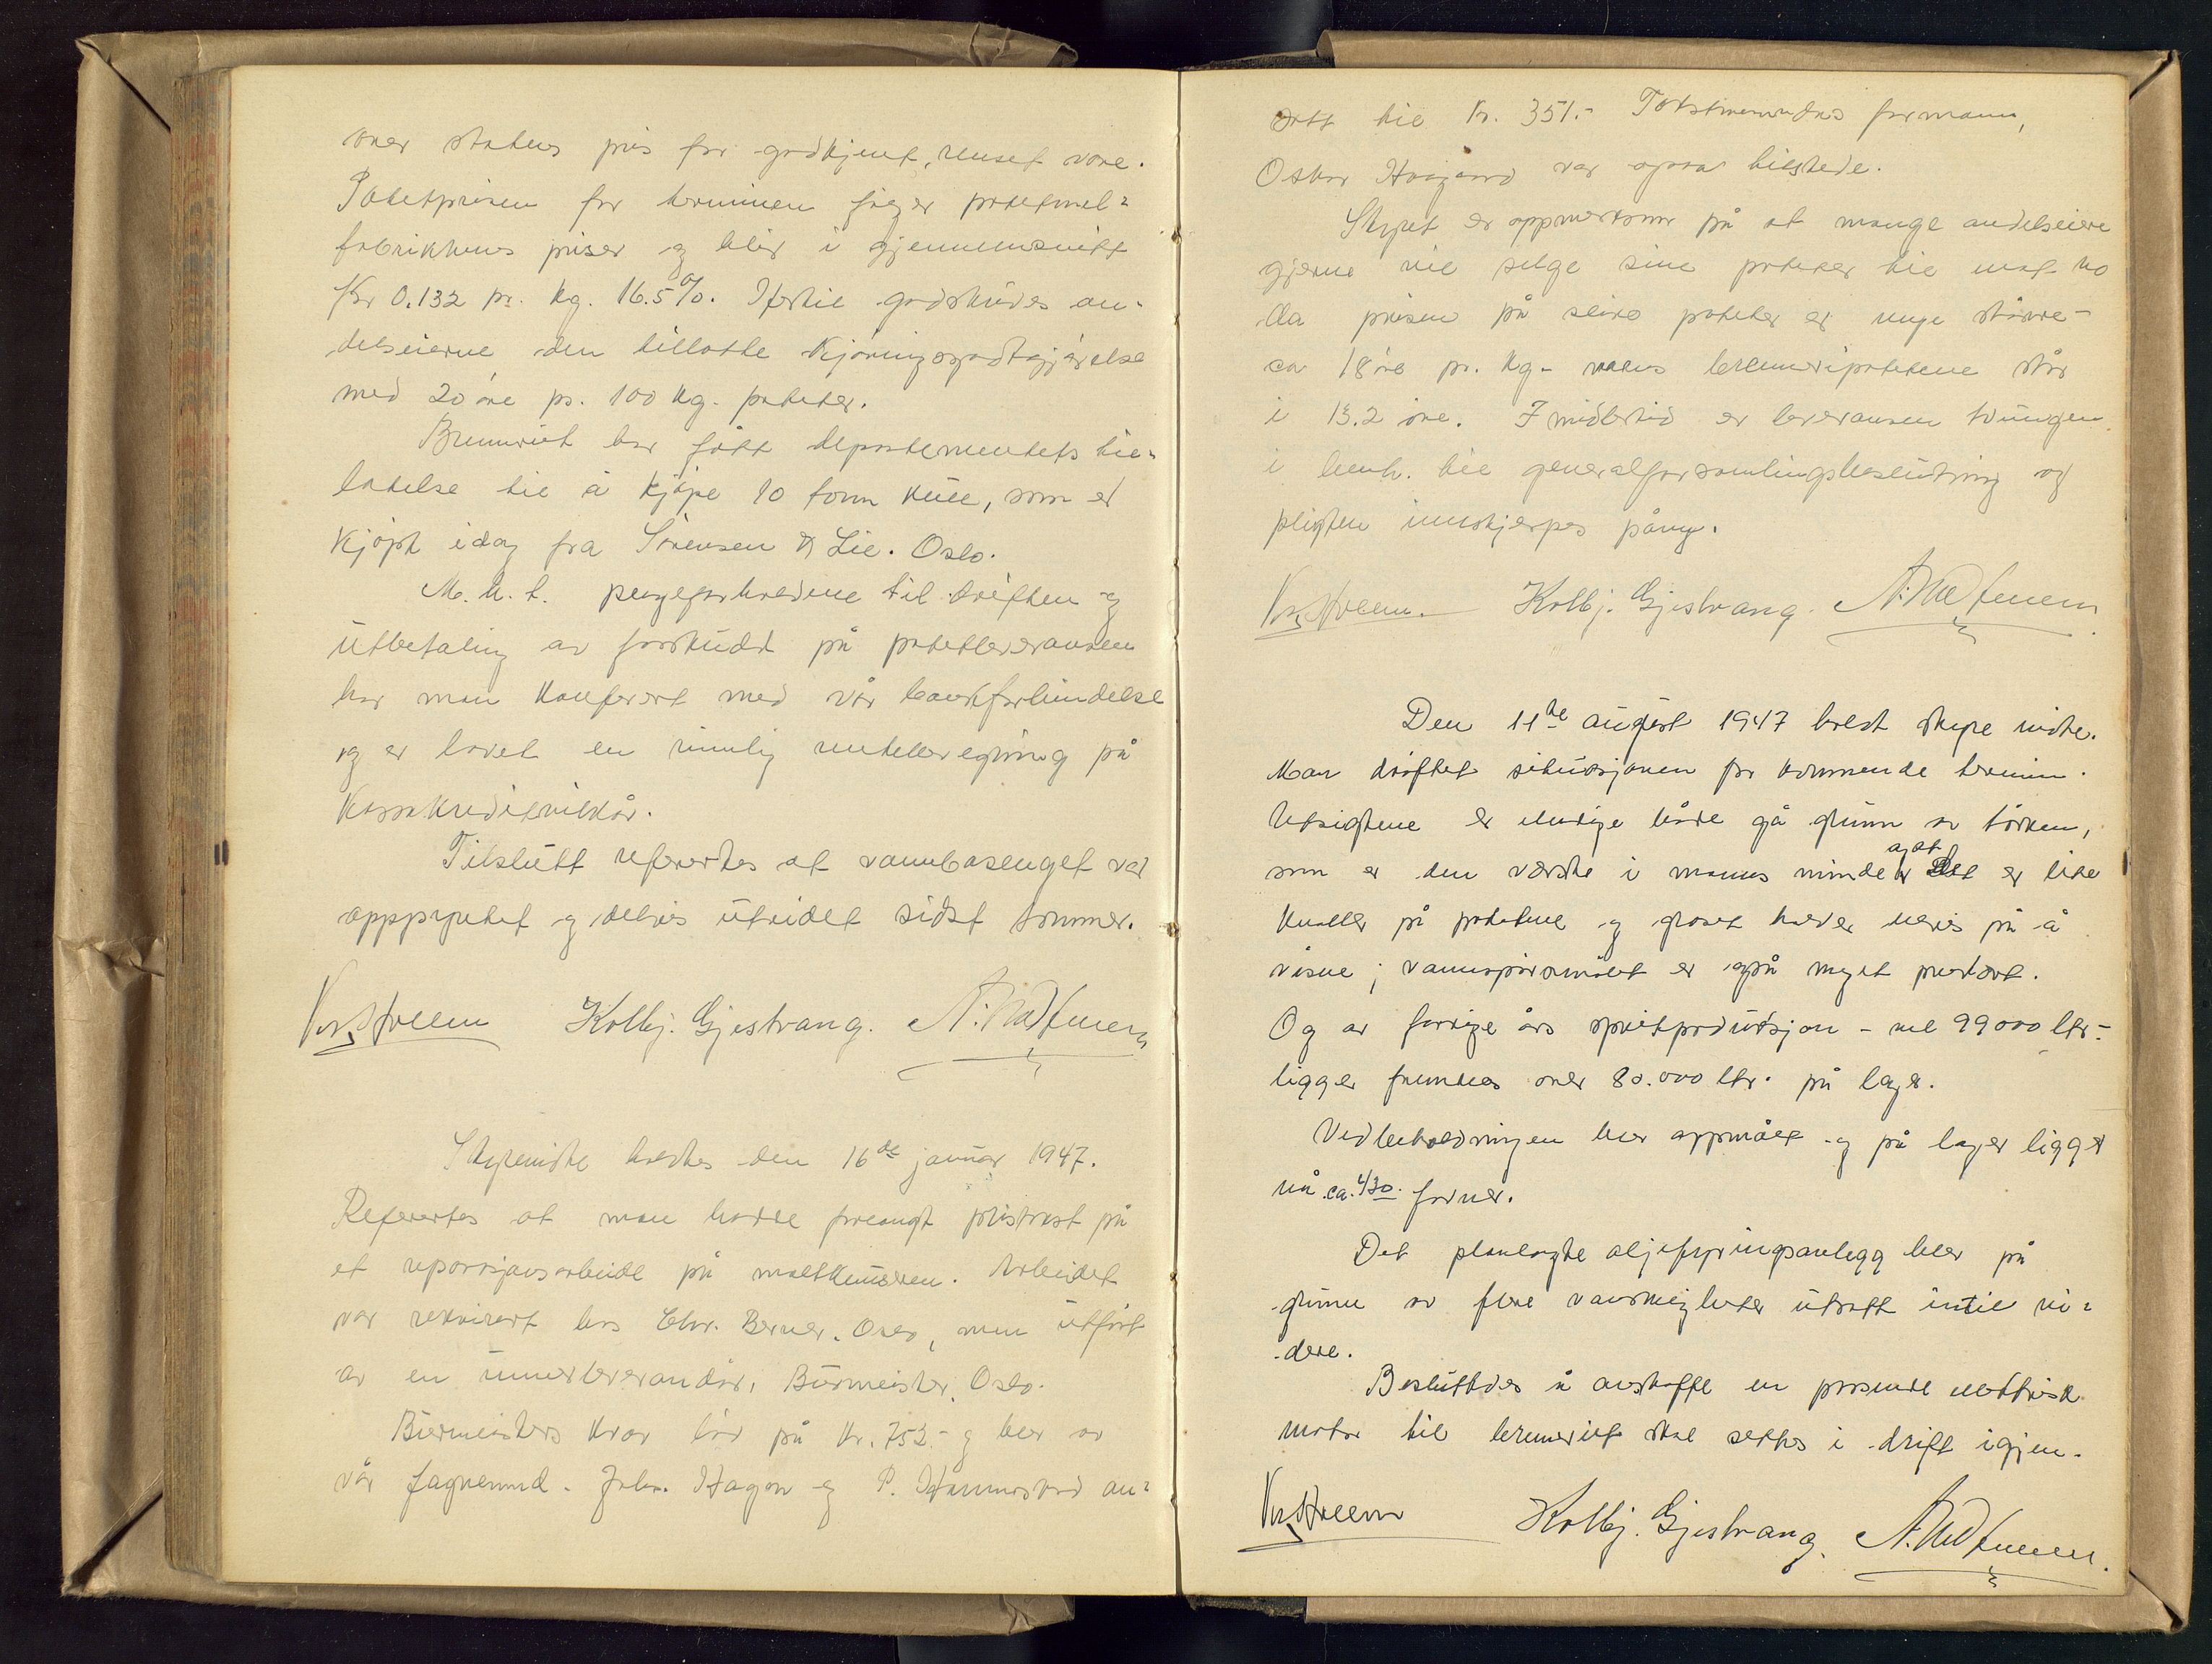 over statens pris for godkjent, renset vare.
Potetprisen for terminen følger potetmel-
fabrikkenes priser og blir i gjennemsnitt
Kr 0.132 pr. kg. 16.5%. Hertil godskrives an-
delseierne den tillatte kjøringsgodtgjørelse
med 20 øre pr. 100 kg. poteter.
Brenneriet har fått departementets til-
ladelse til å kjøpe 10 tonn kull, som er
kjøpt idag fra Sørensen & Lie. Oslo.
M. h. t. pengeforholdene til driften og
utbetaling av forskudd på potetleveransen
har man konferert med vår bankforbindelse
og er lovet en rimelig renteberegning på
kassakreditvilkår.
Tilslutt refertes at vannbasenget var
opppyntet og delvis utvidet sidst sommer.
Kolbj. Gjestvang.
Styremøte holdtes den 16de januar 1947.
Refertes at man hadde forlangt pristakst på
et reparasjonsarbeide på maltknuseren. Arbeidet
var rekvirert hos Chr. Berner. Oslo, men utført
av en underleverandør, Burmeister, Oslo.
Burmeisters krav lød på kr. 752.- og blev av
vår fagnemnd. Johs. Hagen og P. an-
satt til Kr. 351.- Takstnemndas formann,
Oskar var også tilstede.
Styret er oppmerksom på at mange andelseiere
gjerne vil selge sine poteter til mat no
da prisen på slike poteter er mye større -
ca 18 øre pr. kg - mens brenneripotetene står
i 13.2 øre. Imidlertid er leveransen tvungen
i henh. til generalforsamlingsbeslutning og
pligten innskjerpes påny.
Kolbj. Gjestvang.
Den 11te august 1947 holdt styre møte.
Man drøftet situasjonen for kommende termin.
Utsigtene er elendige både på grunn av tørken,
som er den værste i manns minde og at det er lite
knoller på potetene og graset holder på å
visne; vannspørsmålet er også meget prekært.
Og av forrige års spritproduksjon - vel 99000 ltr -
ligger fremdeles over 80.000 ltr. på lager.
Vedbeholdningen blev oppmålt og på lager ligger
nå ca. 430. favner.
Det planlagte oljefyringsanlegg blev på
grunn av flere vanskeligheter utsatt intil vi-
dere.
Besluttedes å anskaffe en passende elektrisk
motor til brenneriet skal settes i drift igjen.
Kolbj. Gjestvang.